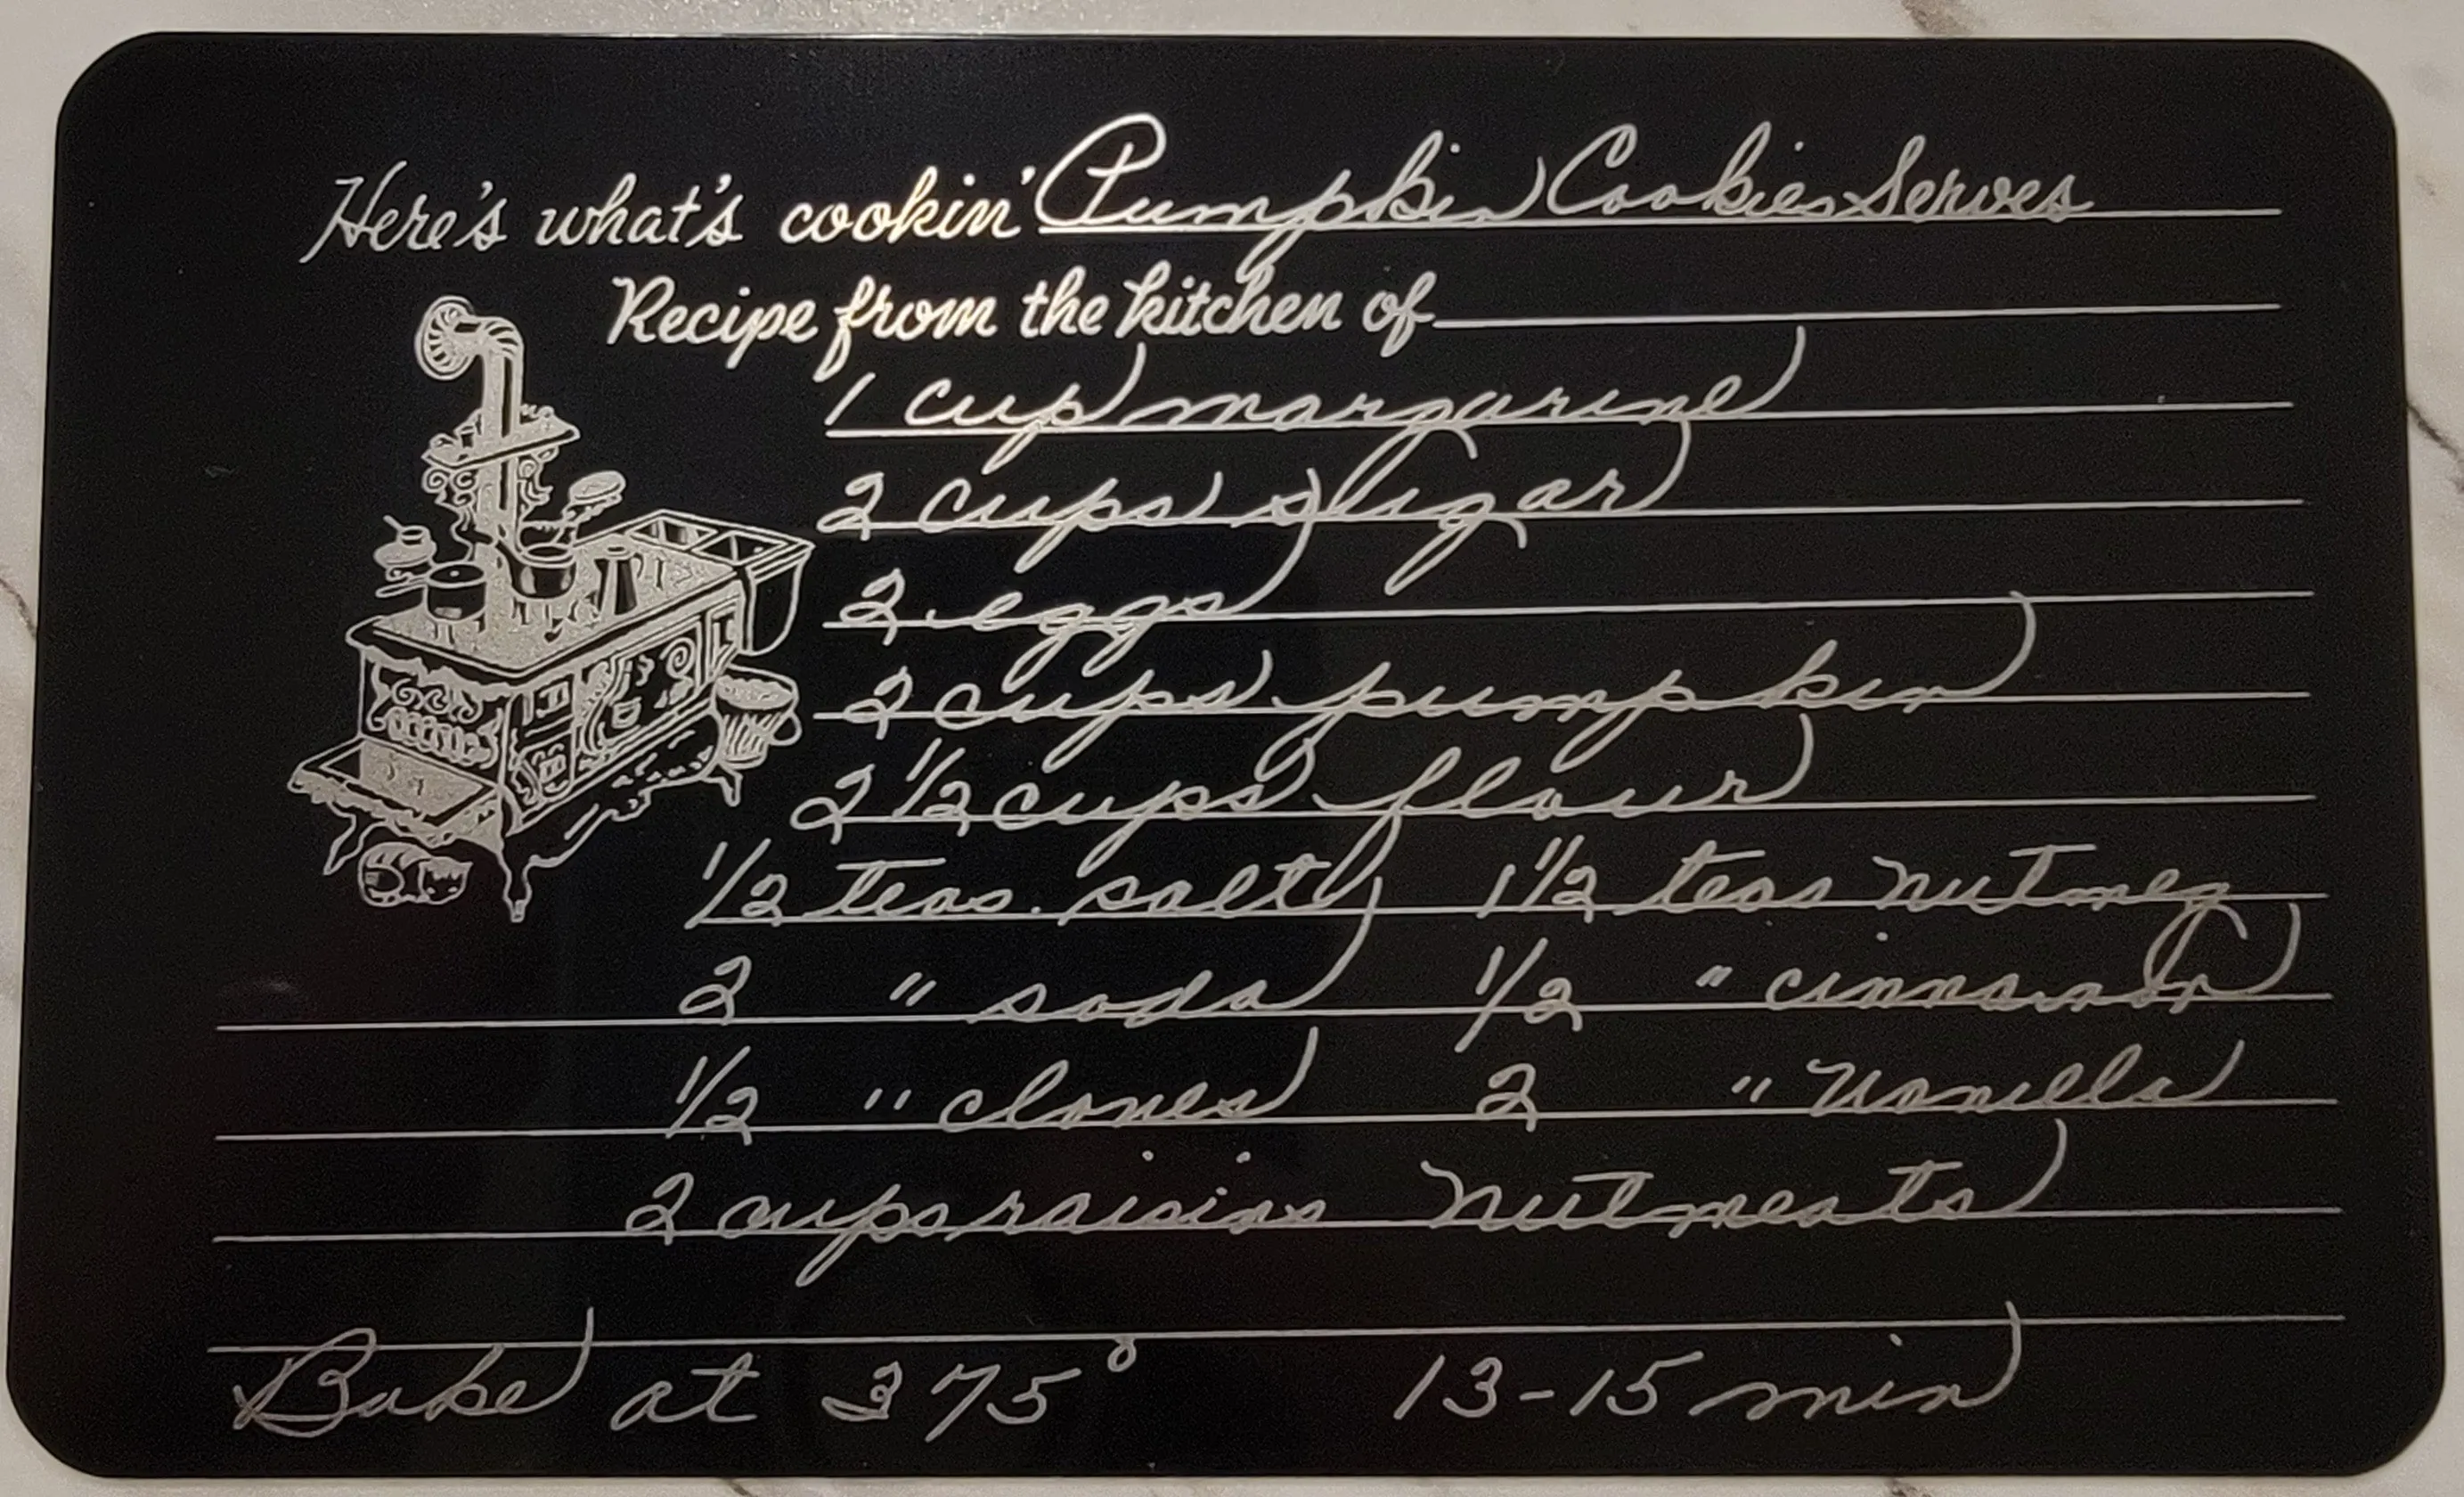 Here's what's cookin' Pumpkin Cookies Serves
Recipe from the kitchen of
1 cup margarine
2 cups sugar
2 eggs
2 cups pumpkin
2 1/2 cups flour
1/2 teas. salt 1 1/2 teas nutmeg
2 " soda 1/2 " cinnamon
1/2 " cloves 2 " Vanilla
2 cups raisins Nutmeats
Bake at 375° 13-15 min